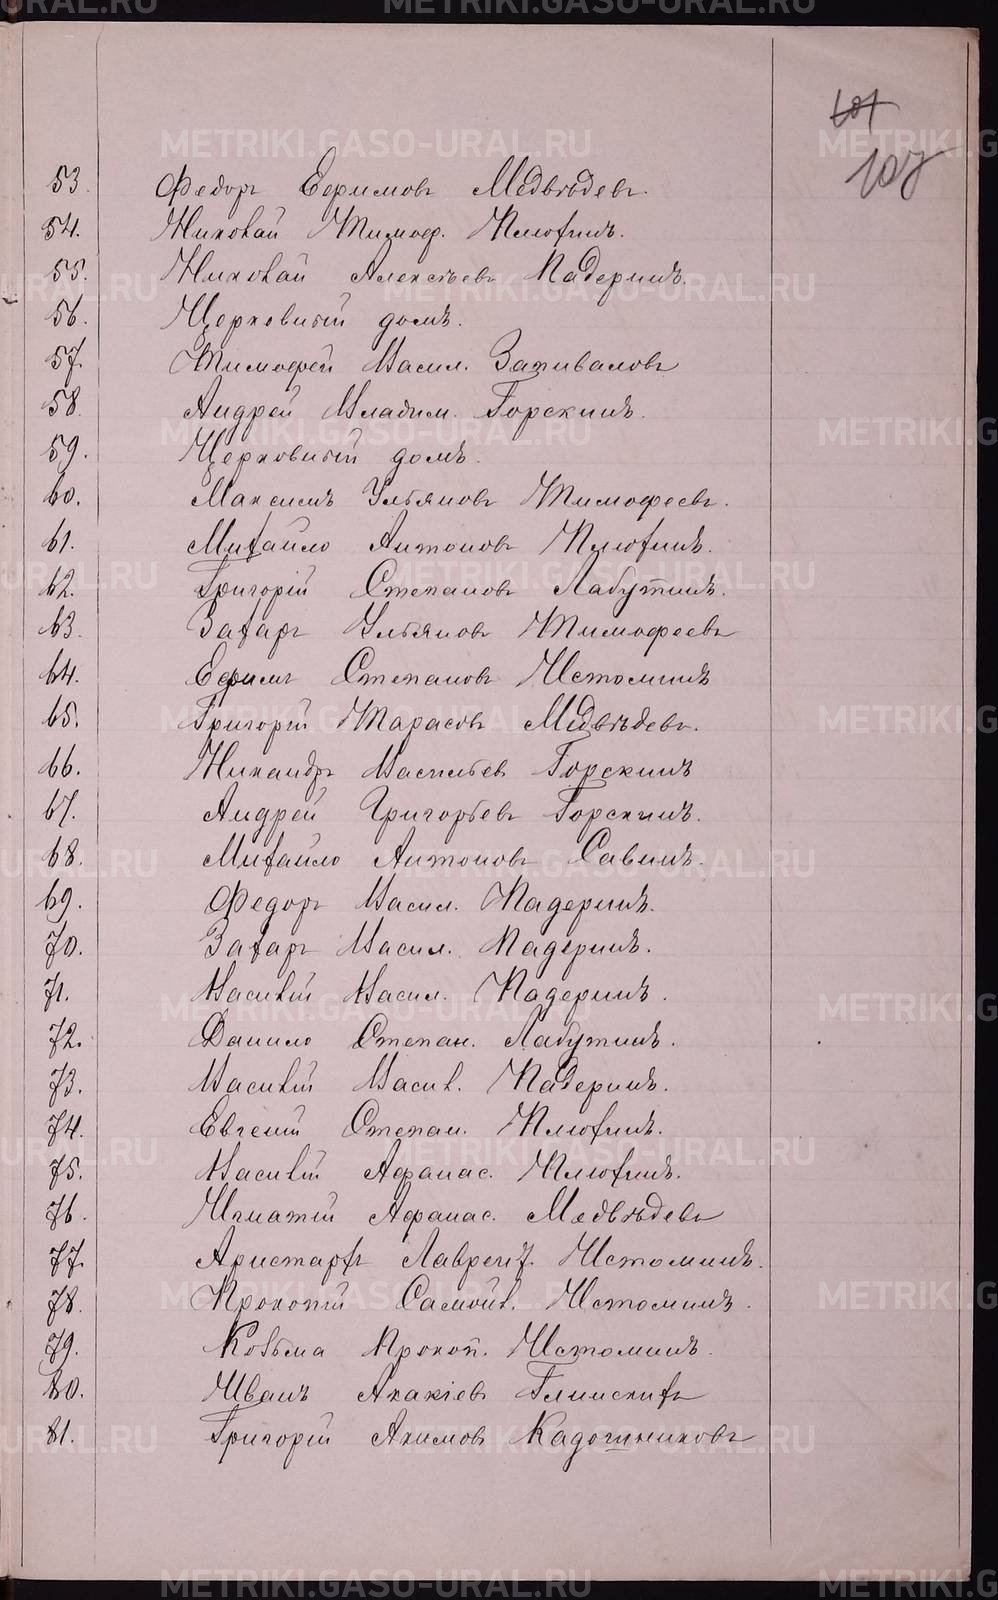 107
107
53. Федоръ Ефимовъ Медвѣдевъ.
54. Николай Тимоф. Плюхинъ.
55. Николай Алексѣевъ Падеринъ.
56. Церковный домъ.
57. Тимофей Васил. Запиваловъ
58. Андрей Владим. Горскинъ.
59. Церковный домъ.
60. Максимъ Ульяновъ Тимофеевъ.
61. Михайло Антоновъ Плюхинъ.
62. Григорій Степановъ Лабутинъ.
63. Захаръ Ульяновъ Тимофеевъ
64. Ефимъ Степановъ Истоминъ
65. Григорій Тарасовъ Медвѣдевъ.
66. Никандръ Васильев Горскинъ
67. Андрей Григорьевъ Горскинъ.
68. Михайло Антоновъ Савинъ.
69. Федоръ Васил. Падеринъ.
70. Захаръ Васил. Падеринъ.
71. Василій Васил. Падеринъ.
72. Данило Степан. Лабутинъ.
73. Василій Васил. Падеринъ.
74. Евгений Степан. Плюхинъ.
75. Василій Афанас. Плюхинъ.
76. Игнатій Афанас. Медвѣдевъ
77. Аристархъ Лаврент. Истоминъ.
78. Прокопій Самойл. Истоминъ.
79. Козьма Прокоп. Истоминъ.
80. Иванъ Акакіевъ Глинскихъ
81. Григорій Акимовъ Кадошниковъ
METRIKI.GASO-URAL.RU